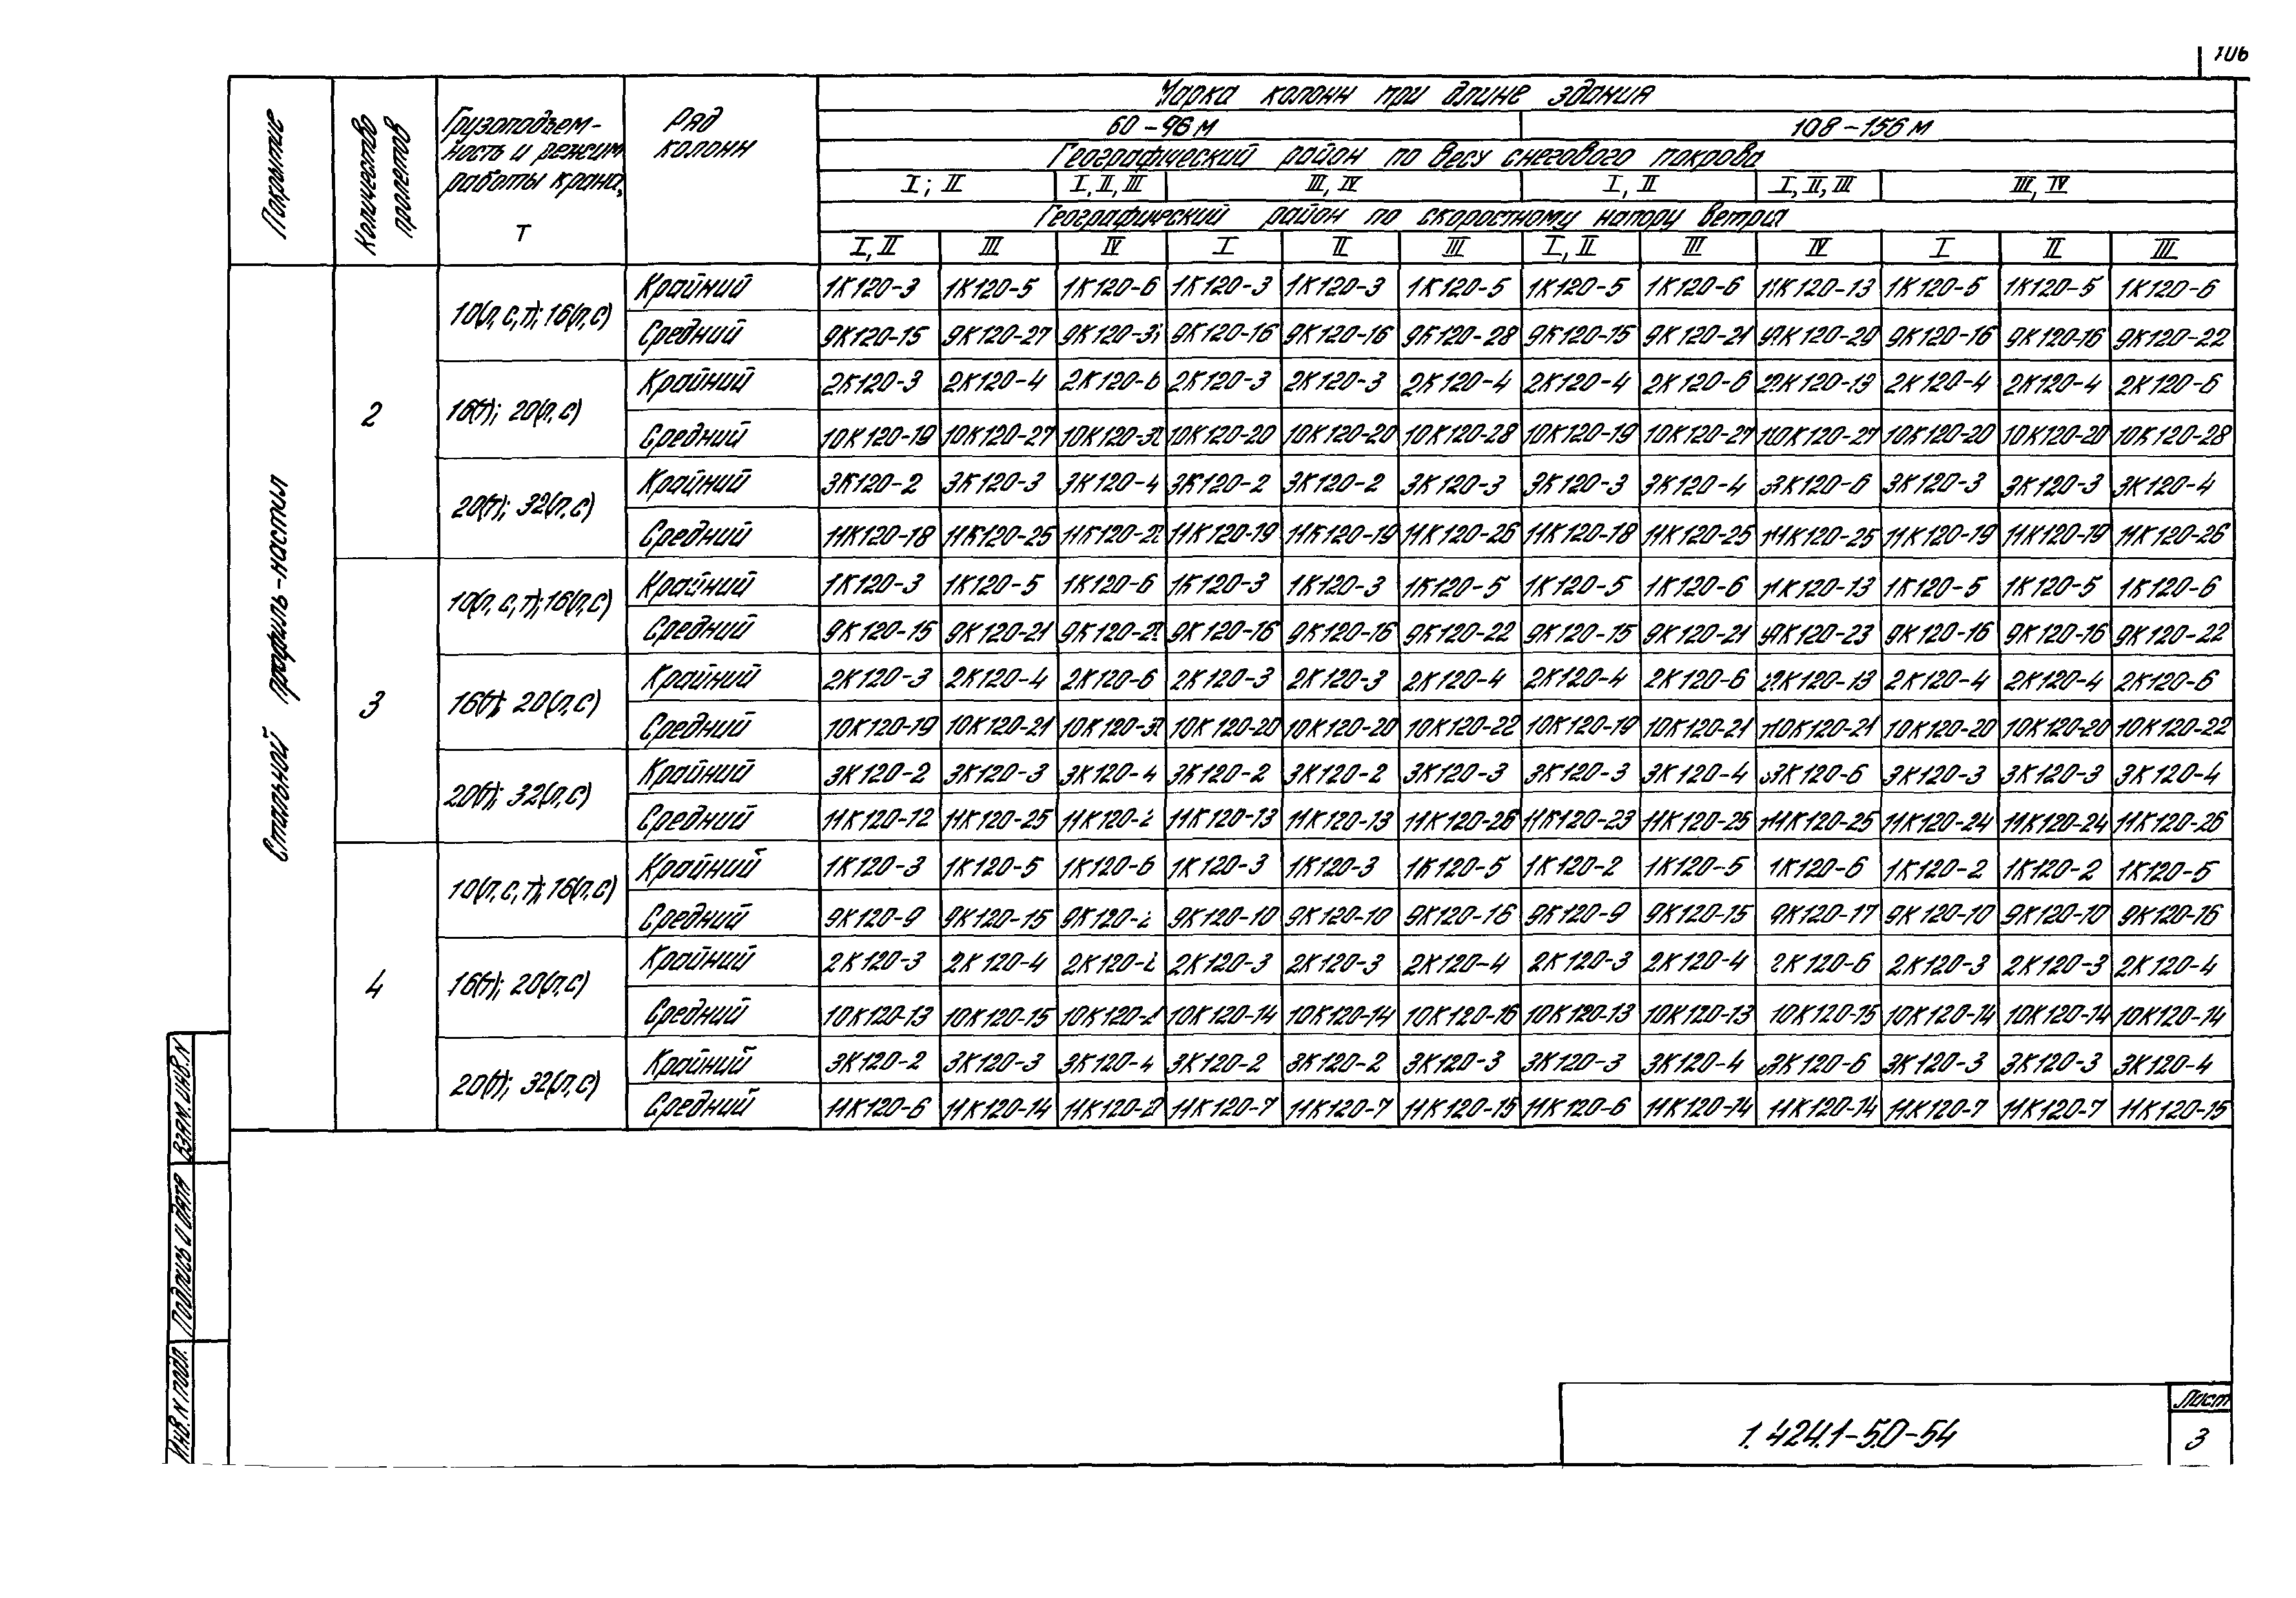 106
Покрытие
Количество пролетов
Грузоподъем-
ность и режим
работы крана,
Т
Ряд
колонн
Марка колонн при длине здания
60-96 м 108-156 м
Географический район по весу снегового покрова
I; II I, II, III III, IV I, II I, II, III III, IV
Географический район по скоростному напору ветра
I, II III IV I II III I, II III IV I II III
Стальной профиль-настил
2
10(л,с,т); 16(л,с)
Крайний 1К120-3 1К120-5 1К120-6 1К120-3 1К120-3 1К120-5 1К120-5 1К120-6 1К120-13 1К120-5 1К120-5 1К120-6
Средний 9К120-15 9К120-27 9К120-16 9К120-16 9К120-28 9К120-15 9К120-21 9К120-29 9К120-16 9К120-16 9К120-22
16(т); 20(л,с)
Крайний 2К120-3 2К120-4 2К120-6 2К120-3 2К120-3 2К120-4 2К120-4 2К120-6 2К120-13 2К120-4 2К120-4 2К120-6
Средний 10К120-19 10К120-27 10К120-20 10К120-20 10К120-28 10К120-19 10К120-27 10К120-27 10К120-20 10К120-20 10К120-28
20(т); 32(л,с)
Крайний 3К120-2 3К120-3 3К120-4 3К120-2 3К120-2 3К120-3 3К120-3 3К120-4 3К120-6 3К120-3 3К120-3 3К120-4
Средний 11К120-18 11К120-25 11К120-19 11К120-19 11К120-26 11К120-18 11К120-25 11К120-25 11К120-19 11К120-19 11К120-26
3
10(л,с,т); 16(л,с)
Крайний 1К120-3 1К120-5 1К120-6 1К120-3 1К120-3 1К120-5 1К120-5 1К120-6 1К120-13 1К120-5 1К120-5 1К120-6
Средний 9К120-15 9К120-21 9К120-16 9К120-16 9К120-22 9К120-15 9К120-21 9К120-23 9К120-16 9К120-16 9К120-22
16(т); 20(л,с)
Крайний 2К120-3 2К120-4 2К120-6 2К120-3 2К120-3 2К120-4 2К120-4 2К120-6 2К120-13 2К120-4 2К120-4 2К120-6
Средний 10К120-19 10К120-21 10К120-20 10К120-20 10К120-22 10К120-19 10К120-21 10К120-21 10К120-20 10К120-20 10К120-22
20(т); 32(л,с)
Крайний 3К120-2 3К120-3 3К120-4 3К120-2 3К120-2 3К120-3 3К120-3 3К120-4 3К120-6 3К120-3 3К120-3 3К120-4
Средний 11К120-12 11К120-25 11К120-13 11К120-13 11К120-26 11К120-23 11К120-25 11К120-25 11К120-24 11К120-24 11К120-26
4
10(л,с,т); 16(л,с)
Крайний 1К120-3 1К120-5 1К120-6 1К120-3 1К120-3 1К120-5 1К120-2 1К120-5 1К120-6 1К120-2 1К120-2 1К120-5
Средний 9К120-9 9К120-15 9К120-10 9К120-10 9К120-16 9К120-9 9К120-15 9К120-17 9К120-10 9К120-10 9К120-16
16(т); 20(л,с)
Крайний 2К120-3 2К120-4 2К120-3 2К120-3 2К120-4 2К120-3 2К120-4 2К120-6 2К120-3 2К120-3 2К120-4
Средний 10К120-13 10К120-15 10К120-14 10К120-14 10К120-16 10К120-13 10К120-13 10К120-15 10К120-14 10К120-14 10К120-14
20(т); 32(л,с)
Крайний 3К120-2 3К120-3 3К120-4 3К120-2 3К120-2 3К120-3 3К120-3 3К120-4 3К120-6 3К120-3 3К120-3 3К120-4
Средний 11К120-6 11К120-14 11К120-7 11К120-7 11К120-15 11К120-6 11К120-14 11К120-14 11К120-7 11К120-7 11К120-15
ВЗАМ. ИНВ. N
ПОДПИСЬ И ДАТА
ИНВ. N ПОДЛ.
1.424.1-5.0-54
Лист
3